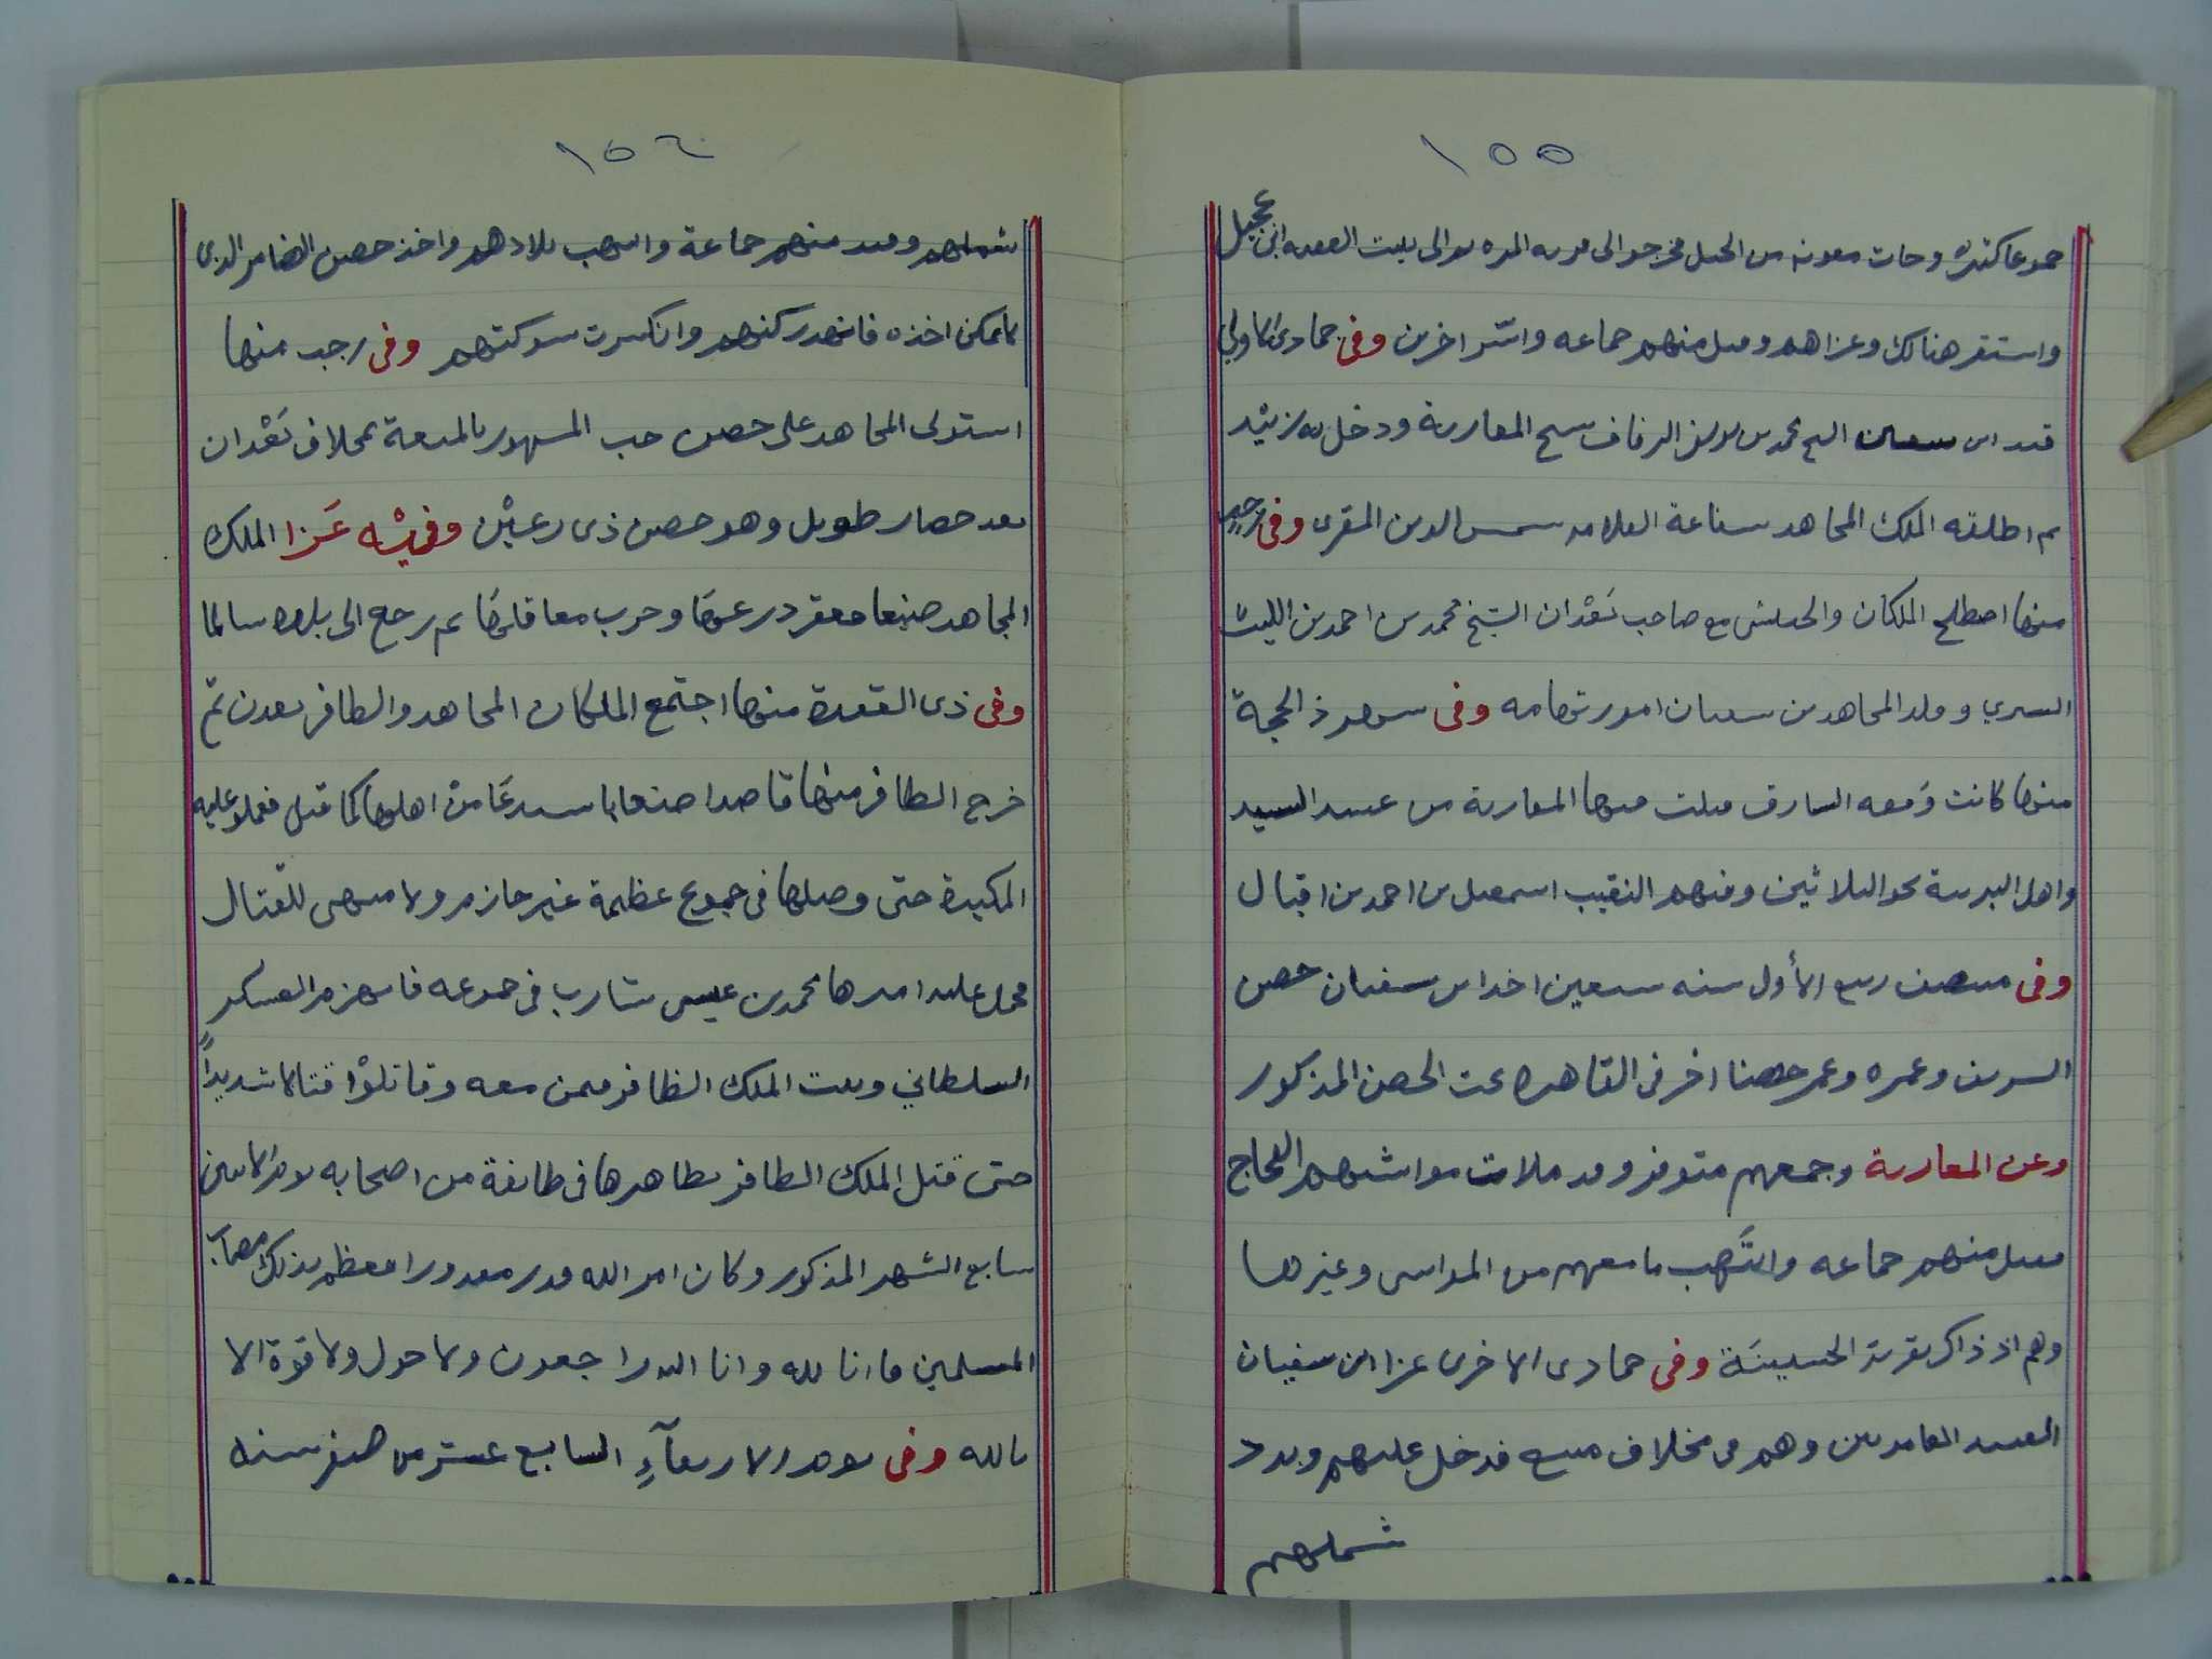 ١٥٥
جموعا كثيرة وجات معونه من الجبل فخرجوا الى قريه المره توالى بيت الفقيه ابن عجيل
واستقر هنالك وغزاهم وقتل منهم جماعه واسر اخرين وفى جمادى الاولى
قيد ابن سفين الشيخ محمد بن يوسف الرفاف شيخ المعاربة ودخل به زبيد
ثم اطلقه الملك المجاهد بشفاعة العلامه شمس الدين المقرى وفى رجب
منها اصطلح الملكان والحبيشى مع صاحب بَعْدان الشيخ محمد بن احمد بن الليث
السيري وقلد المجاهد بن سفيان امور تهامه وفى شهر ذالحجة
منها كانت وقعه البارق قتلت فيها المعاربة من عبيد السيد
واهل البرية نحو الثلاثين ومنهم النقيب اسمعيل بن احمد بن اقبال
وفى منتصف ربيع الأول سنه سبعين اخذ ابن سفيان حصن
الشريف وعمره وعمر حصنا اخر فى القاهره تحت الحصن المذكور
وغزى المعاربة وجمعهم متوفر وقد ملات مواشيهم الفجاج
فقتل منهم جماعه وانتَهب ما معهم من المواشى وغيرها
وهم اذ ذاك بقرية الحسينَة وفى جمادى الاخرى غزا ابن سفيان
العبيد العامريين وهم فى مخلاف فدخل عليهم وبدد
شملهم
١٥٦
شملهم وقيد منهم جماعة وانتهب بلادهم واخذ حصن الضامر الذى
لا يمكن اخذه فانهد ركنهم وانكسرت شوكتهم وفى رجب منها
استولى المجاهد على حصن حب المشهور بالمنعة بمخلاف بَعْدان
بعد حصار طويل وهو حصن ذى رعيْن وفيْه غَزا الملك
المجاهد صنعا فعقر زرعها وخرب معاقلها ثم رجع الى بلده سالما
وفى ذى القعدة منها اجتمع الملكان المجاهد والظافر بعدن ثم
خرج الظافر منها قاصدا صنعا باستدعَا منْ اهلها كما قيل فعملوا عليه
المكيدة حتى وصلها فى جموع عظيمة غير حازم ولا متهى للقتال
فحمل عليه اميرها محمد بن عيسى شارب فى جموعه فانهزم العسكر
السلطاني وثبت الملك الظافر فيمن معه وقاتلوْا قتالا شديداً
حتى قتل الملك الظافر بظاهرها فى طايفة من اصحابه يوم الاثنين
سابع الشهر المذكور وكان امر الله قدر مقدورا فعظم بذلك مصاب
المسلمين فانا لله وانا اليه راجعون ولا حول ولا قوة الا
بالله وفى يوم الاربعآءِ السابع عشر من صفر سنه